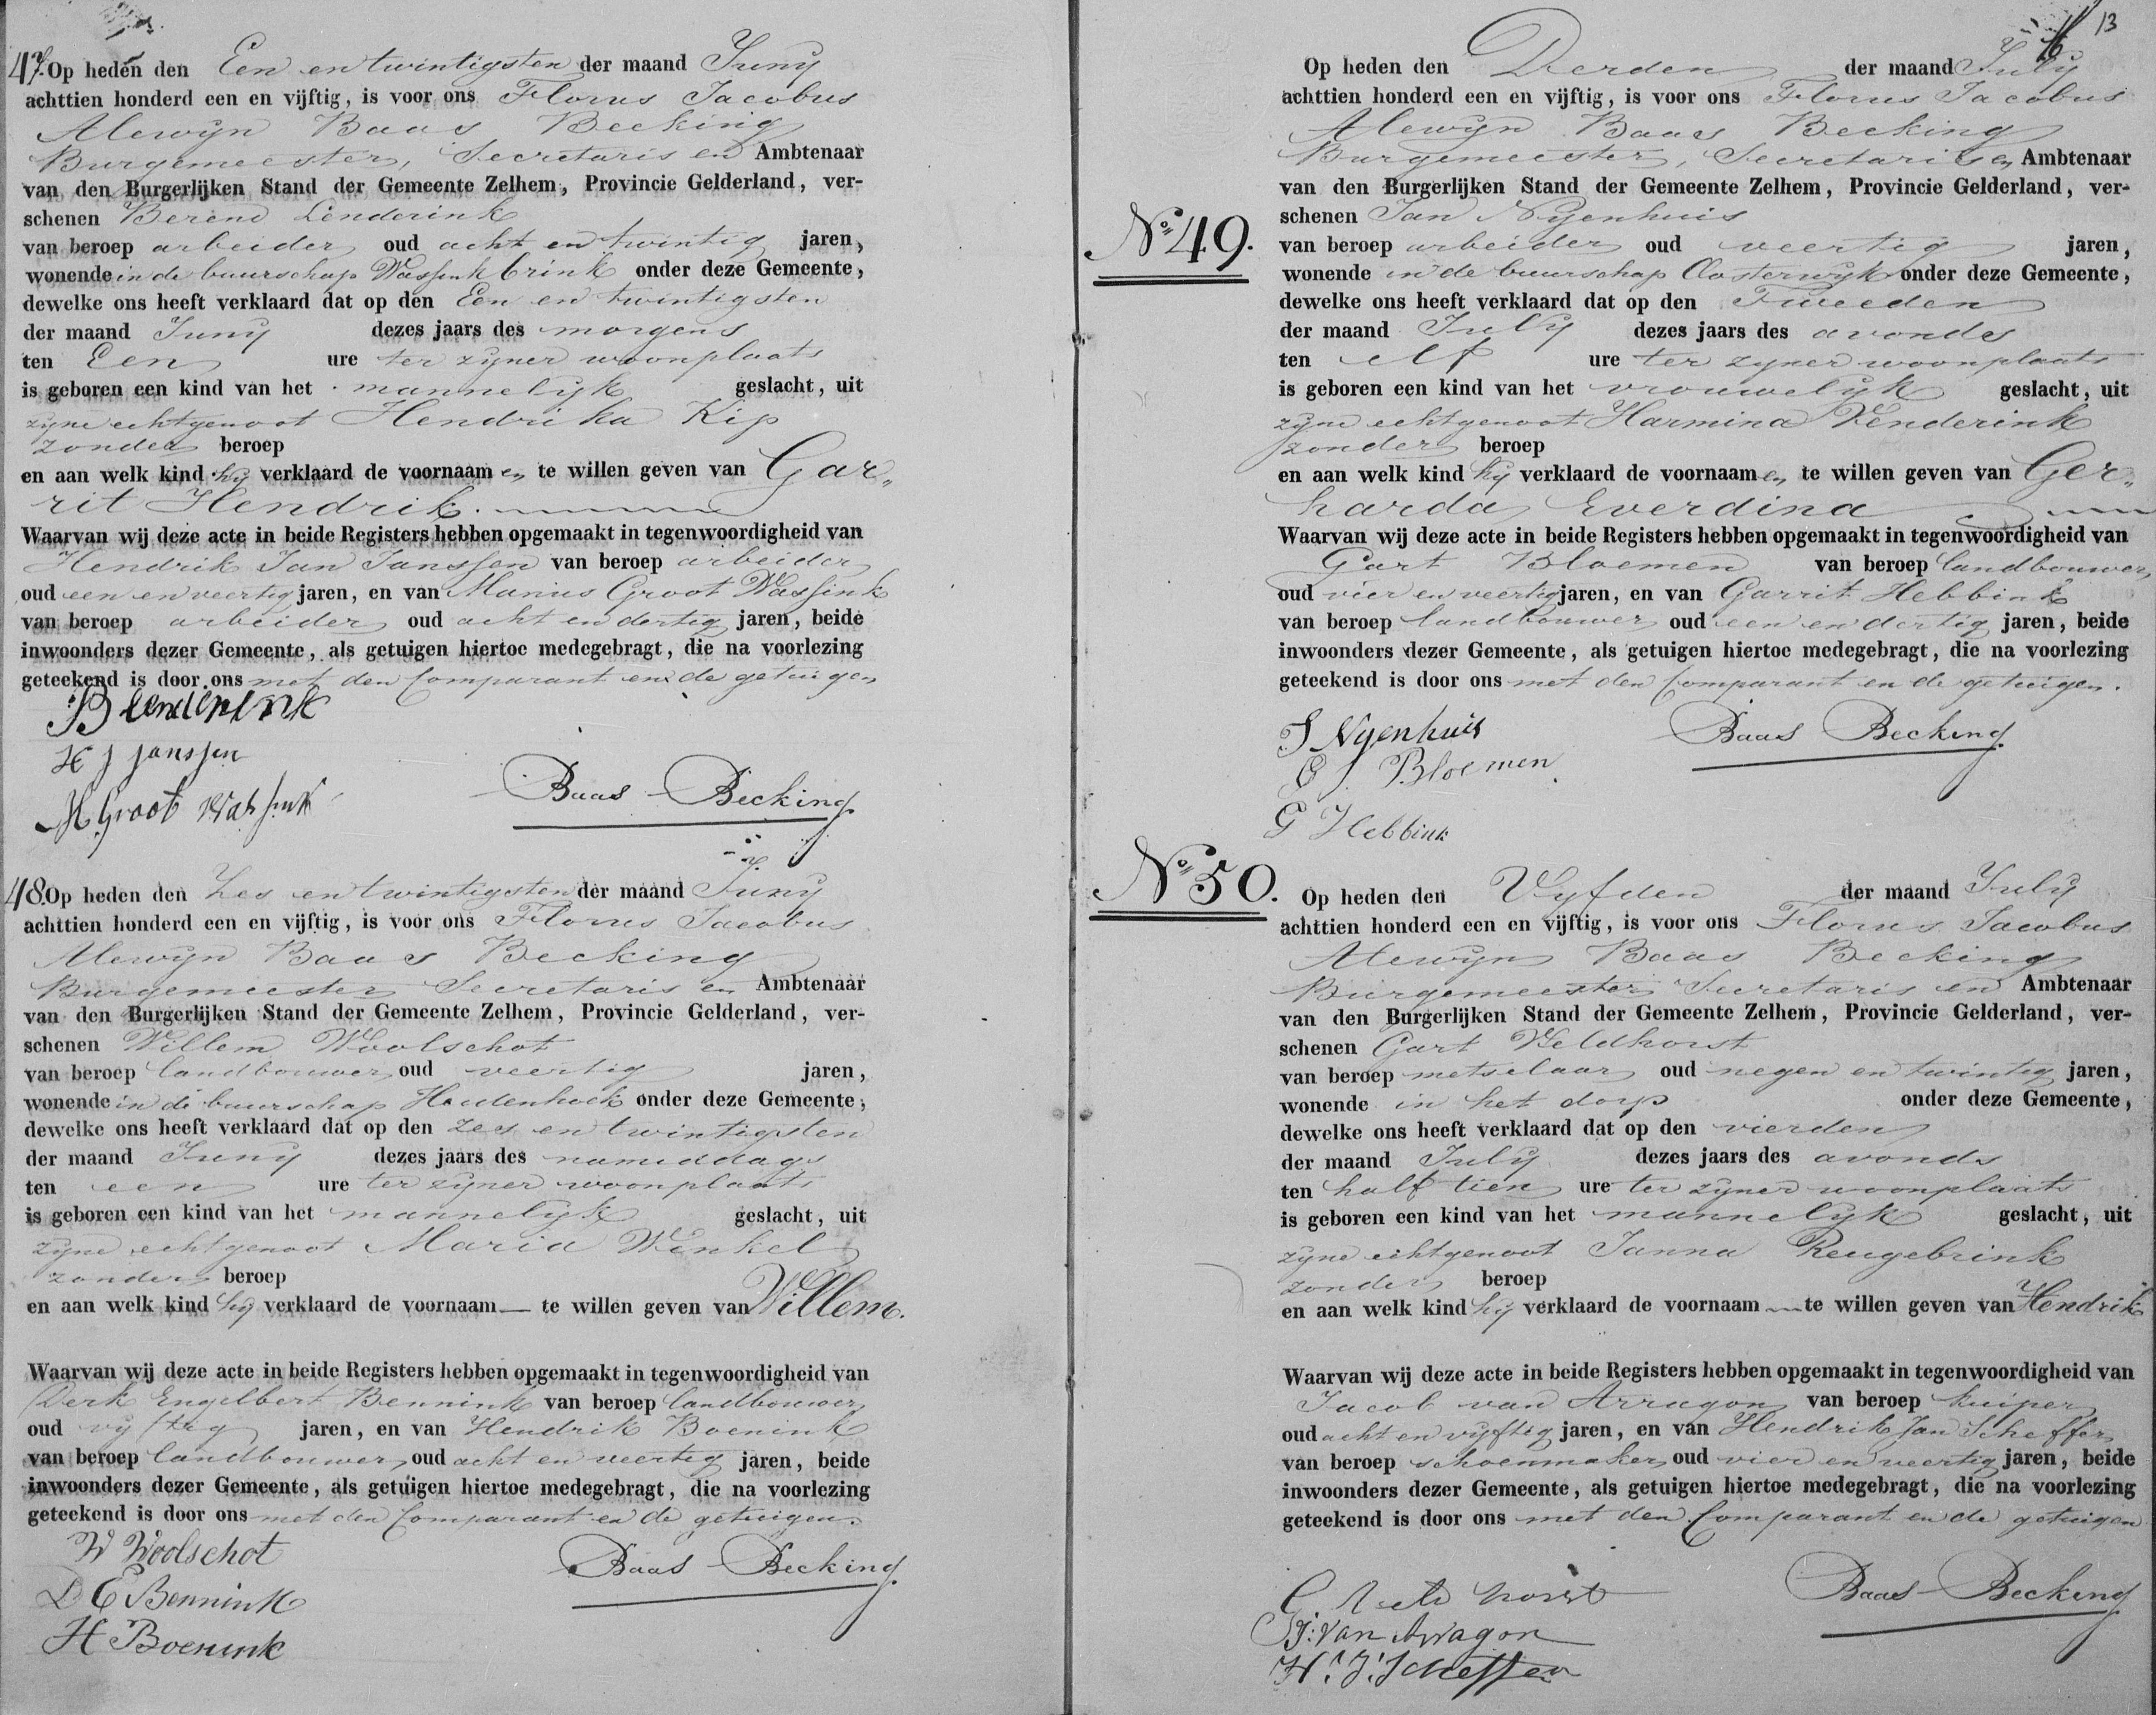 47. Op heden den Een en twintigsten der maand Juny
achttien honderd een en vijftig, is voor ons Florus Jacobus
Alewyn Baas Becking
Burgemeester, Secretaris en Ambtenaar
van den Burgerlijken Stand der Gemeente Zelhem, Provincie Gelderland, ver-
schenen Berend Lenderink
van beroep arbeider oud acht en twintig jaren,
wonende in de buurschap Wassinkbrink onder deze Gemeente,
dewelke ons heeft verklaard dat op den Een en twintigsten
der maand Juny dezes jaars des morgens
ten Een ure ter zyner woonplaats
is geboren een kind van het mannelyk geslacht, uit
zyne echtgenoot Hendrika Kip
zonder beroep
en aan welk kind hy verklaard de voornaam en te willen geven van Gar„
rit Hendrik.
Waarvan wij deze acte in beide Registers hebben opgemaakt in tegenwoordigheid van
Hendrik Jan Janssen van beroep arbeider
oud een en veertig jaren, en van Manus Groot Wassink
van beroep arbeider oud acht en dertig jaren, beide
inwoonders dezer Gemeente, als getuigen hiertoe medegebragt, die na voorlezing
geteekend is door ons met den Comparant en de getuigen
B Lenderink
H J Janssen
M Groot Wassink
Baas Becking
48. Op heden den Zes en twintigsten der maand Juny
achttien honderd een en vijftig, is voor ons Florus Jacobus
Alewyn Baas Becking
Burgemeester Secretaris en Ambtenaar
van den Burgerlijken Stand der Gemeente Zelhem, Provincie Gelderland, ver-
schenen Willem Woolschot
van beroep landbouwer oud veertig jaren,
wonende in de buurschap Heidenhoek onder deze Gemeente,
dewelke ons heeft verklaard dat op den zes en twintigsten
der maand Juny dezes jaars des namiddags
ten een ure ter zyner woonplaats
is geboren een kind van het mannelyk geslacht, uit
zyne echtgenoot Maria Winkel
zonder beroep
en aan welk kind hy verklaard de voornaam — te willen geven van Willem.
Waarvan wij deze acte in beide Registers hebben opgemaakt in tegenwoordigheid van
Derk Engelbert Bennink van beroep landbouwer
oud vyftig jaren, en van Hendrik Boenink
van beroep landbouwer oud acht en veertig jaren, beide
inwoonders dezer Gemeente, als getuigen hiertoe medegebragt, die na voorlezing
geteekend is door ons met den Comparant en de getuigen.
W Woolschot
D E Bennink
H Boenink
Baas Becking
13
No 49.
Op heden den Derden der maand July
achttien honderd een en vijftig, is voor ons Florus Jacobus
Alewyn Baas Becking
Burgemeester, Secretaris en Ambtenaar
van den Burgerlijken Stand der Gemeente Zelhem, Provincie Gelderland, ver-
schenen Jan Nyenhuis
van beroep arbeider oud veertig jaren,
wonende in de buurschap Oosterwyk onder deze Gemeente,
dewelke ons heeft verklaard dat op den Tweeden
der maand July dezes jaars des avonds
ten elf ure ter zyner woonplaats
is geboren een kind van het vrouwelyk geslacht, uit
zyne echtgenoot Harmina Venderink
zonder beroep
en aan welk kind hy verklaard de voornaam en te willen geven van Ger„
harda Everdina
Waarvan wij deze acte in beide Registers hebben opgemaakt in tegenwoordigheid van
Gart Bloemen van beroep landbouwer
oud vier en veertig jaren, en van Garrit Hebbink
van beroep landbouwer oud een en dertig jaren, beide
inwoonders dezer Gemeente, als getuigen hiertoe medegebragt, die na voorlezing
geteekend is door ons met den Comparant en de getuigen.
J Nyenhuis
G J Bloemen
G Hebbink
Baas Becking
No 50.
Op heden den Vyfden der maand July
achttien honderd een en vijftig, is voor ons Florus Jacobus
Alewyn Baas Becking
Burgemeester Secretaris en Ambtenaar
van den Burgerlijken Stand der Gemeente Zelhem, Provincie Gelderland, ver-
schenen Gart Veldhorst
van beroep metselaar oud negen en twintig jaren,
wonende in het dorp onder deze Gemeente,
dewelke ons heeft verklaard dat op den vierden
der maand July dezes jaars des avonds
ten half tien ure ter zyner woonplaats
is geboren een kind van het mannelyk geslacht, uit
zyne echtgenoot Janna Reugebrink
zonder beroep
en aan welk kind hy verklaard de voornaam — te willen geven van Hendrik
Waarvan wij deze acte in beide Registers hebben opgemaakt in tegenwoordigheid van
Jacob van Arragon van beroep kuiper
oud acht en vyftig jaren, en van Hendrik Jan Scheffer
van beroep schoenmaker oud vier en veertig jaren, beide
inwoonders dezer Gemeente, als getuigen hiertoe medegebragt, die na voorlezing
geteekend is door ons met den Comparant en de getuigen
G Veldhorst
J: van Arragon
H: J: Scheffer
Baas Becking